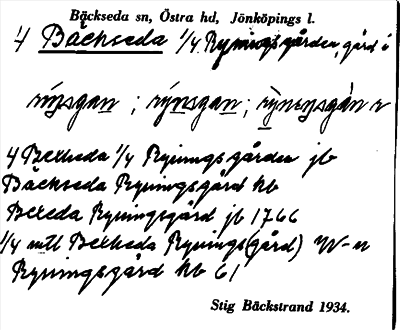 Bäckseda sn, Östra hd, Jönköpings l.
4 Bäckseda 1/4 Ryningsgården, gård i
rýnsgan ; rýnsgan ;
4 Bexheda 1/4 Ryningsgården jb
Bäckseda Ryningsgård kb
Bexeda Ryningsgård jb 1766
1/4 mtl Bexheda Rynings(gård) W-n
Ryningsgård kb 61
Stig Bäckstrand 1934.